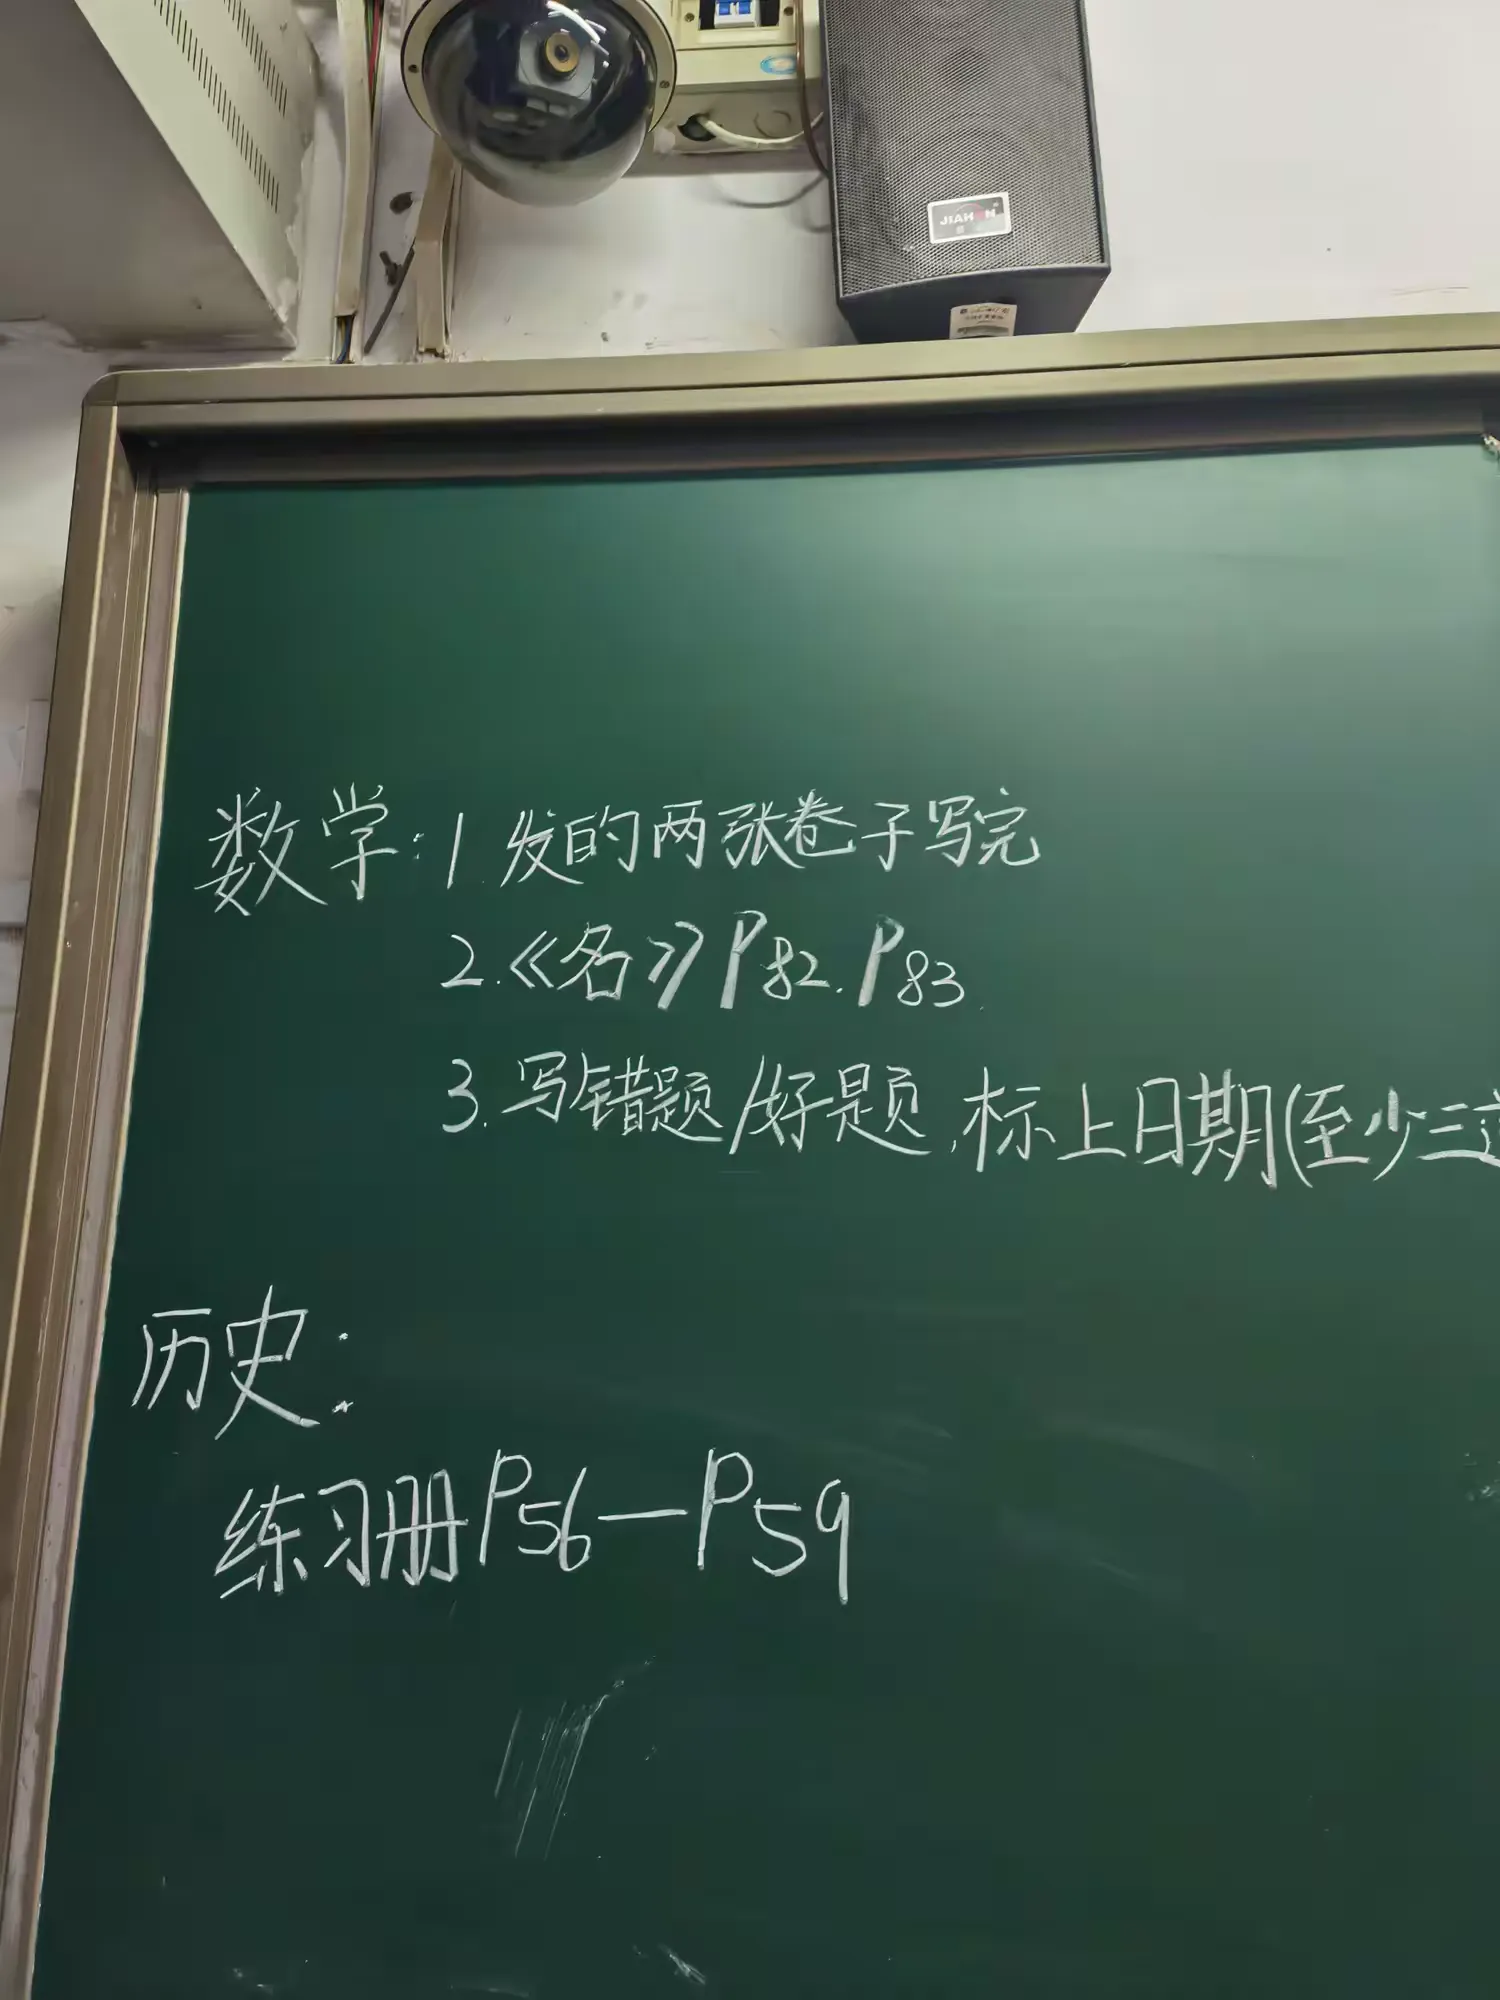 JIAH
数学:1.发的两张卷子写完
2.《名》P82.P83.
3.写错题/好题,标上日期(至少三道
历史:
练习册P56—P59